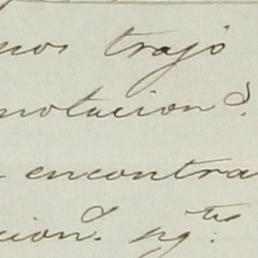 nos trajó
notacion d.
encontra
cion. ng.tes